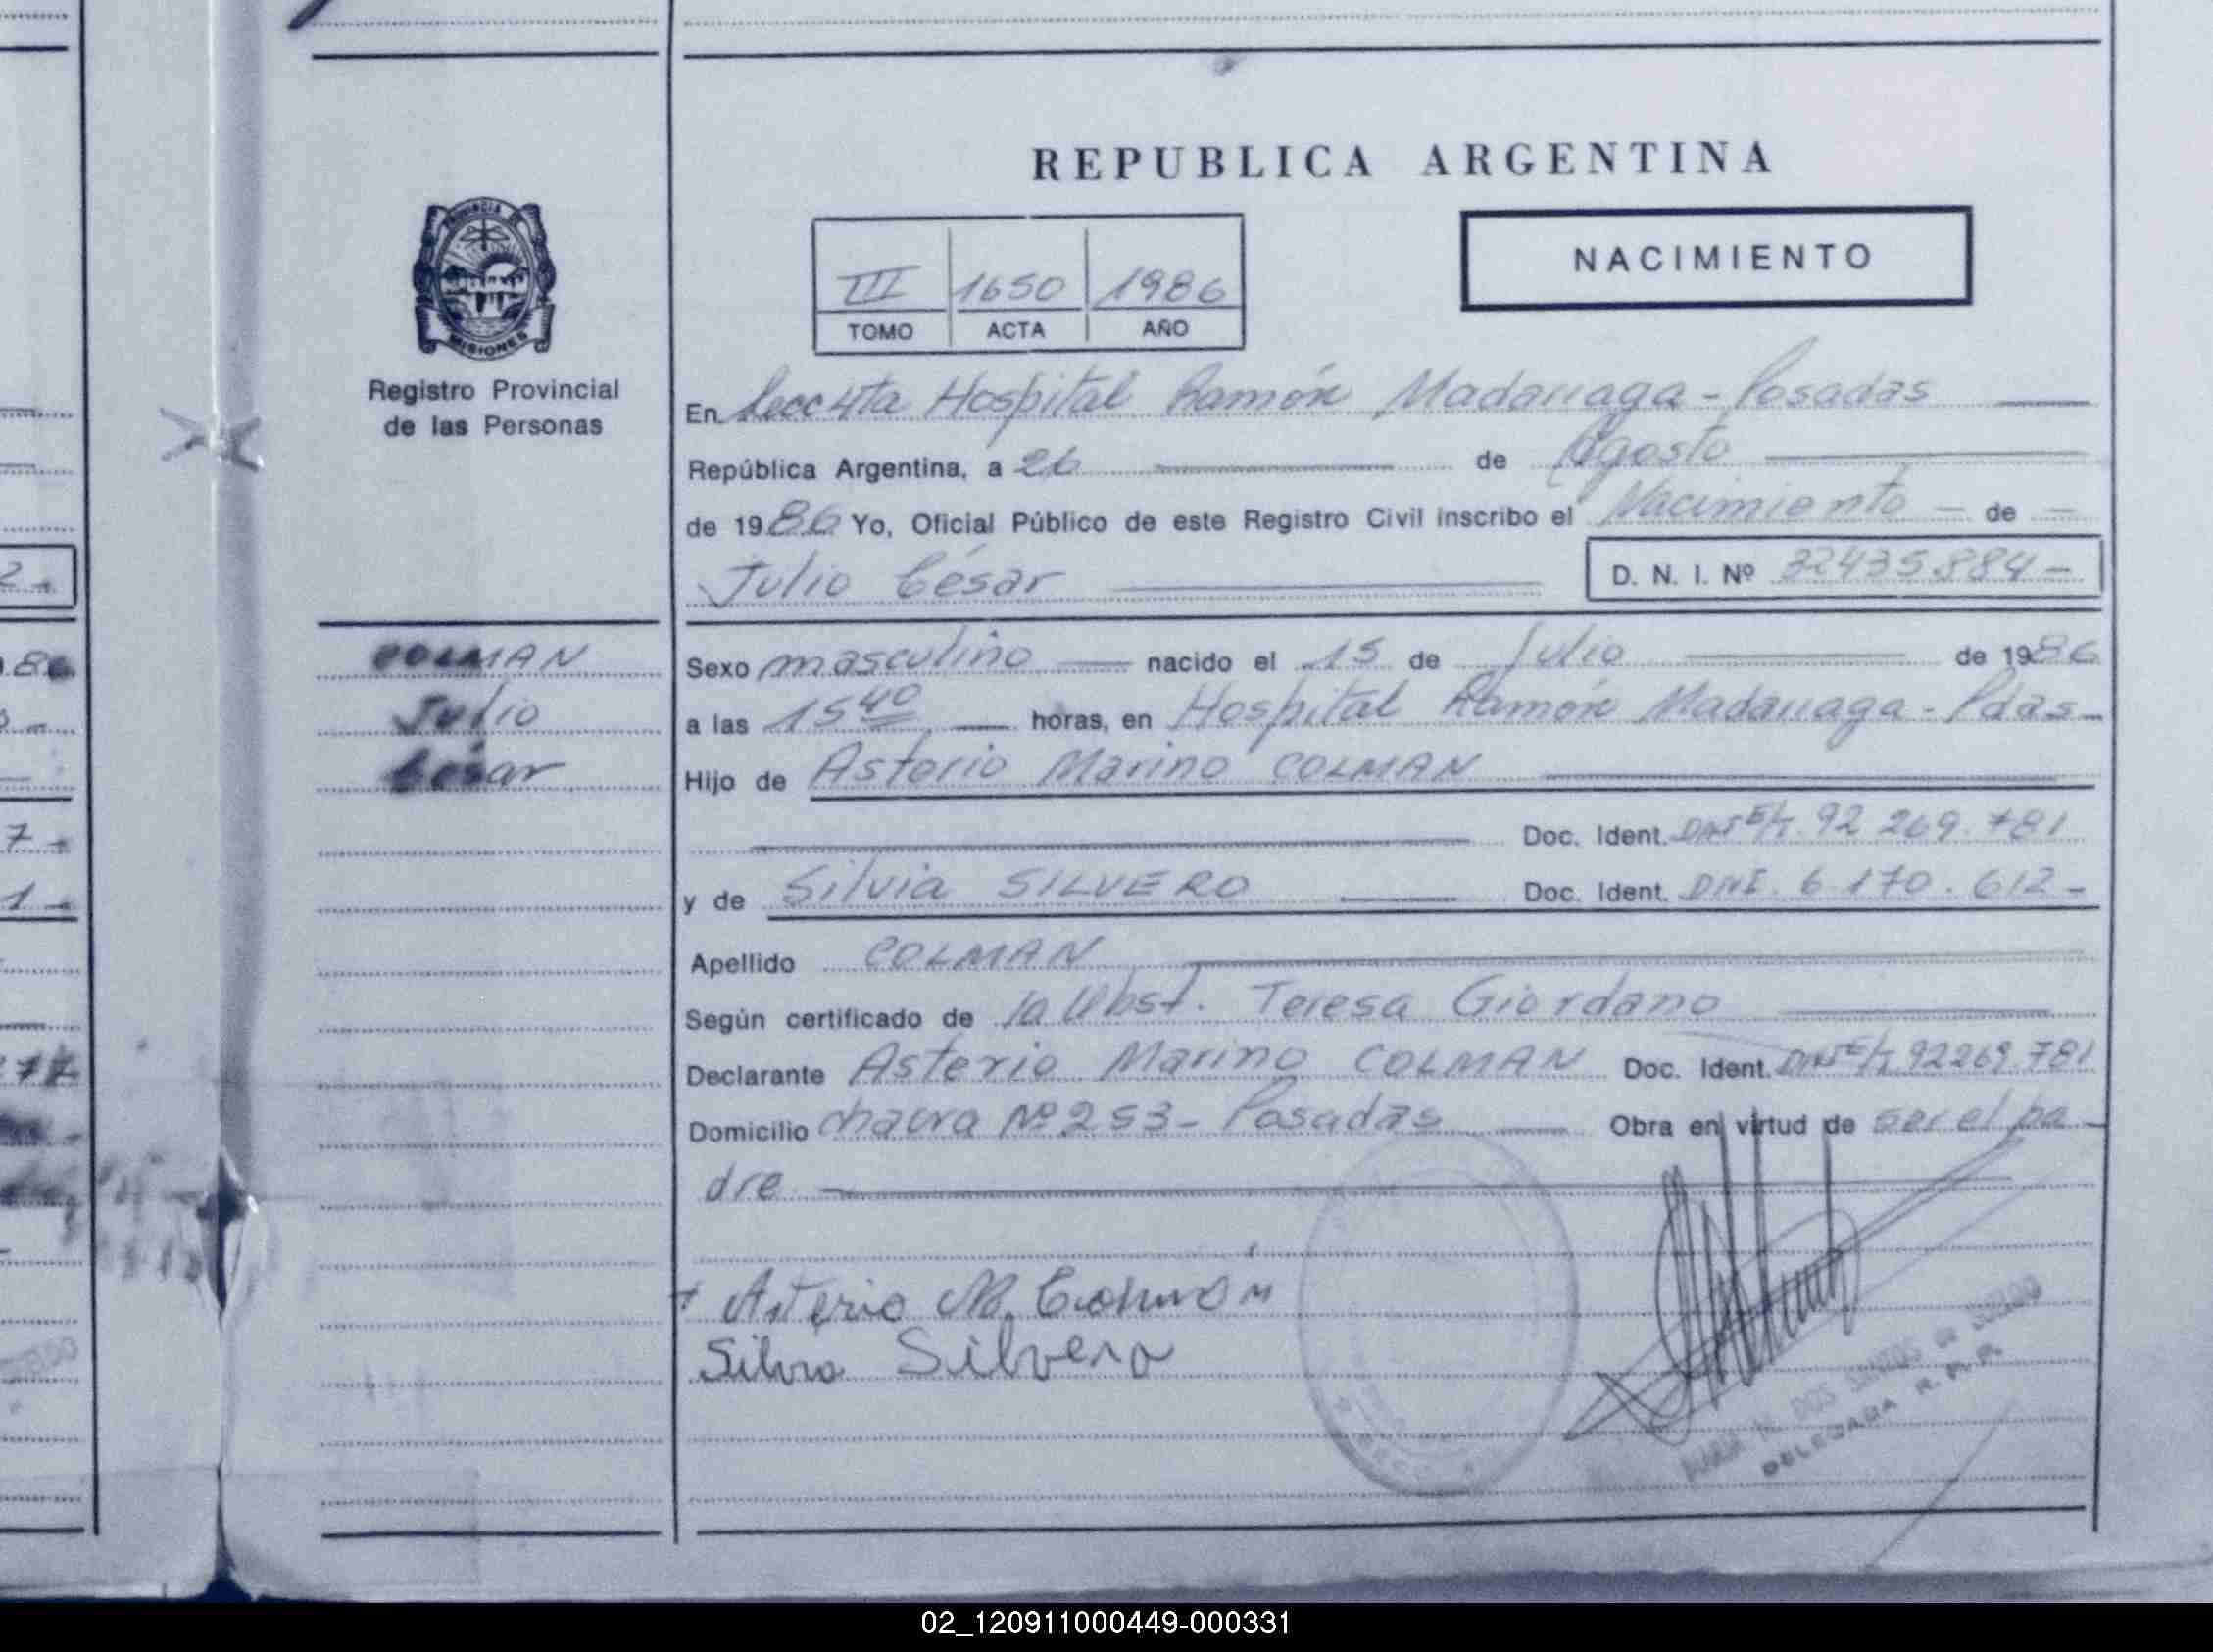 REPUBLICA ARGENTINA
PROVINCIA DE
MISIONES
Registro Provincial
de las Personas
NACIMIENTO
III 1650 1986
TOMO ACTA AÑO
En Secc 4ta Hospital Ramón Madariaga - Posadas
República Argentina, a 26 de Agosto
de 1986 Yo, Oficial Público de este Registro Civil inscribo el Nacimiento - de -
Julio César D. N. I. Nº 32435.884-
COLMAN
Julio
César
Sexo masculino nacido el 15 de Julio de 1986
a las 15 40 horas, en Hospital Ramón Madariaga - Pdas-
Hijo de Asterio Marino COLMAN
Doc. Ident. 92 269.781
y de Silvia SILVERO Doc. Ident. DNI. 6.170.612-
Apellido COLMAN
Según certificado de la Obst. Teresa Giordano
Declarante Asterio Marino COLMAN Doc. Ident. 92269.781
Domicilio chacra Nº 253- Posadas Obra en virtud de ser el pa-
dre
Asterio M. Colmán
Silvia Silvero
DOS SANTOS de
DELEGADA R. P. P.
02_120911000449-000331